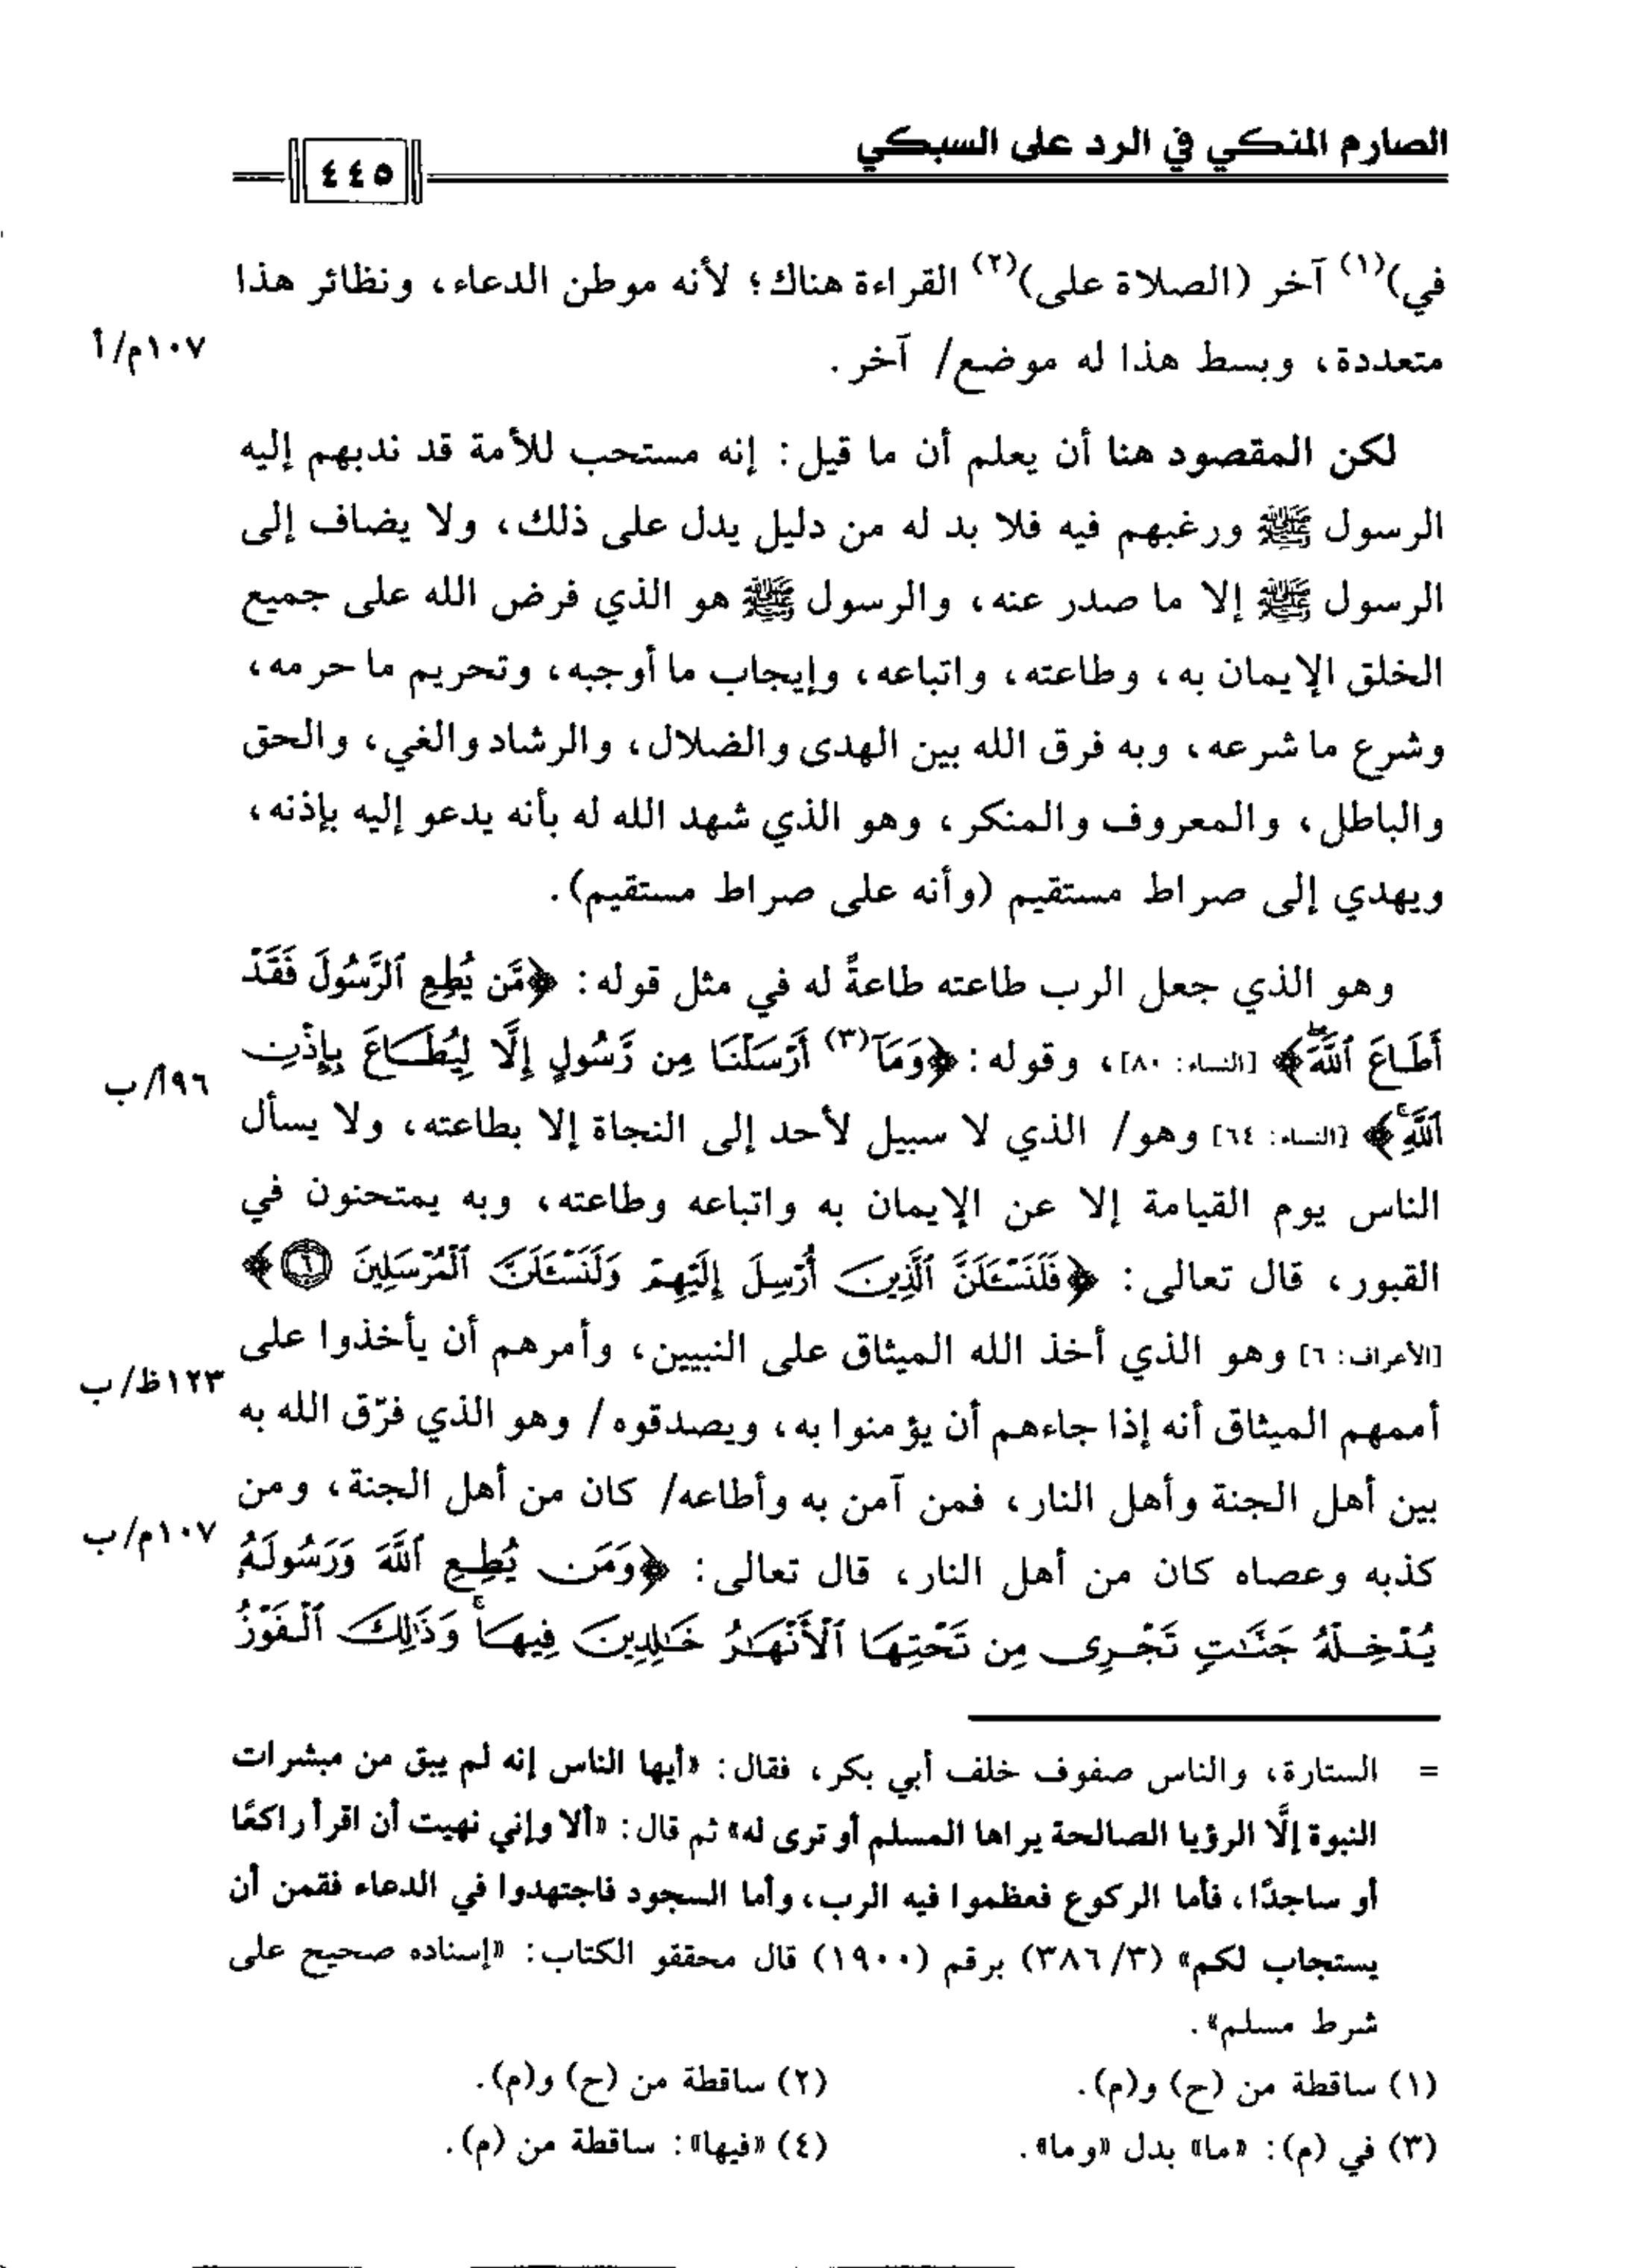 الصارم المنكي في الرد على السبكي
٤٤٥
في)(١) آخر (الصلاة على)(٢) القراءة هناك؛ لأنه موطن الدعاء، ونظائر هذا
متعددة، وبسط هذا له موضع/ آخر.
١٠٧م/أ
لكن المقصود هنا أن يعلم أن ما قيل: إنه مستحب للأمة قد ندبهم إليه
الرسول ﷺ ورغبهم فيه فلا بد له من دليل يدل على ذلك، ولا يضاف إلى
الرسول ﷺ إلا ما صدر عنه، والرسول ﷺ هو الذي فرض الله على جميع
الخلق الإيمان به، وطاعته، واتباعه، وإيجاب ما أوجبه، وتحريم ما حرمه،
وشرع ما شرعه، وبه فرق الله بين الهدى والضلال، والرشاد والغي، والحق
والباطل، والمعروف والمنكر، وهو الذي شهد الله له بأنه يدعو إليه بإذنه،
ويهدي إلى صراط مستقيم (وأنه على صراط مستقيم).
وهو الذي جعل الرب طاعته طاعةً له في مثل قوله: ﴿مَّن يُطِعِ ٱلرَّسُولَ فَقَدْ
أَطَاعَ ٱللَّهَۖ﴾ [النساء: ٨٠]، وقوله: ﴿وَمَآ(٣) أَرْسَلْنَا مِن رَّسُولٍ إِلَّا لِيُطَاعَ بِإِذْنِ
٩٦أ/ب
ٱللَّهِۚ﴾ [النساء: ٦٤] وهو/ الذي لا سبيل لأحد إلى النجاة إلا بطاعته، ولا يسأل
الناس يوم القيامة إلا عن الإيمان به واتباعه وطاعته، وبه يمتحنون في
القبور، قال تعالى: ﴿فَلَنَسْـَٔلَنَّ ٱلَّذِينَ أُرْسِلَ إِلَيْهِمْ وَلَنَسْـَٔلَنَّ ٱلْمُرْسَلِينَ ٦﴾
[الأعراف: ٦] وهو الذي أخذ الله الميثاق على النبيين، وأمرهم أن يأخذوا على
١٢٣ظ/ب
أممهم الميثاق أنه إذا جاءهم أن يؤمنوا به، ويصدقوه/ وهو الذي فرّق الله به
بين أهل الجنة وأهل النار، فمن آمن به وأطاعه/ كان من أهل الجنة، ومن
١٠٧م/ب
كذبه وعصاه كان من أهل النار، قال تعالى: ﴿وَمَن يُطِعِ ٱللَّهَ وَرَسُولَهُۥ
يُدْخِلْهُ جَنَّٰتٍ تَجْرِى مِن تَحْتِهَا ٱلْأَنْهَٰرُ خَٰلِدِينَ فِيهَاۚ وَذَٰلِكَ ٱلْفَوْزُ
= الستارة، والناس صفوف خلف أبي بكر، فقال: «أيها الناس إنه لم يبق من مبشرات
النبوة إلَّا الرؤيا الصالحة يراها المسلم أو ترى له» ثم قال: «ألا وإني نهيت أن اقرأ راكعًا
أو ساجدًا، فأما الركوع فعظموا فيه الرب، وأما السجود فاجتهدوا في الدعاء فقمن أن
يستجاب لكم» (٣/ ٣٨٦) برقم (١٩٠٠) قال محققو الكتاب: «إسناده صحيح على
شرط مسلم».
(١) ساقطة من (ح) و(م).
(٢) ساقطة من (ح) و(م).
(٣) في (م): «ما» بدل «وما».
(٤) «فيها»: ساقطة من (م).